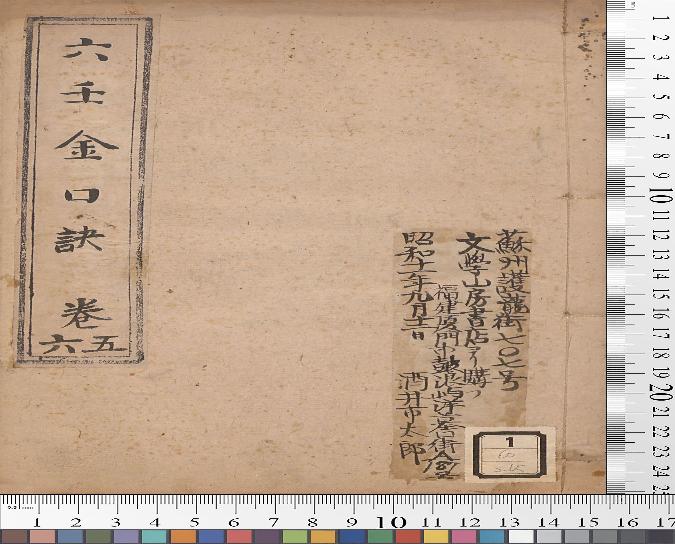 六壬金口訣 卷
五六
蘇州護龍街七〇七号
文學山房書店ヨリ購フ
福建厦門鼓浪嶼洋
昭和十一年九月十二日 酒井市太郎
1
60
1 2 3 4 5 6 7 8 9 10 11 12 13 14 15 16 17 18 19 20 21 22 23 24
1 2 3 4 5 6 7 8 9 10 11 12 13 14 15 16 17